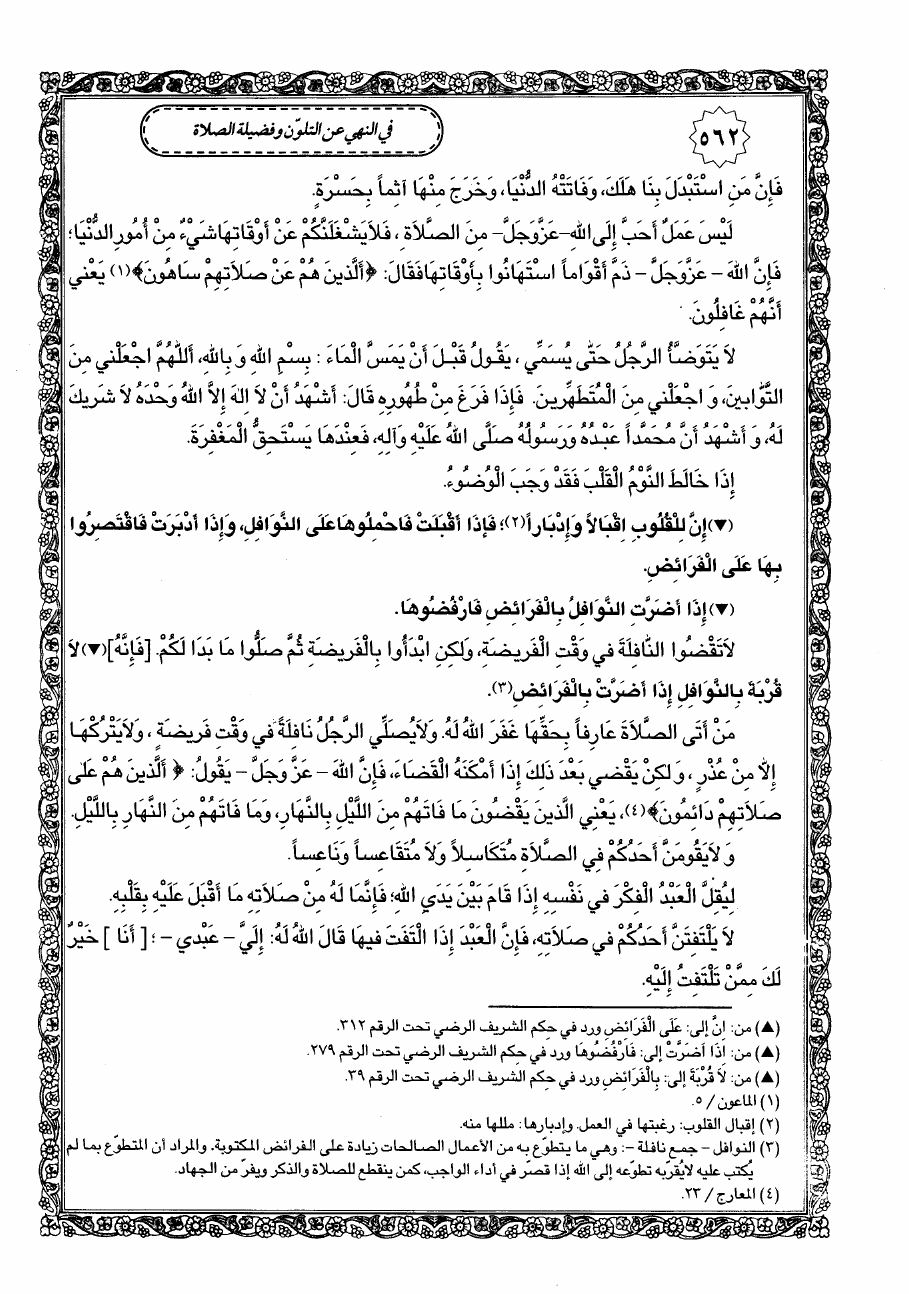 ٥٦٢
في النهي عن التلوّن وفضيلة الصلاة
فَإِنَّ مَنِ اسْتَبْدَلَ بِنَا هَلَكَ، وَفَاتَتْهُ الدُّنْيَا، وَخَرَجَ مِنْهَا آثِماً بِحَسْرَةٍ.
لَيْسَ عَمَلٌ أَحَبَّ إِلَى اللهِ–عَزَّوَجَلَّ– مِنَ الصَّلاَةِ ، فَلاَيَشْغَلَنَّكُمْ عَنْ أَوْقَاتِهَاشَيْءٌ مِنْ أُمُورِ الدُّنْيَا؛
فَإِنَّ اللهَ – عَزَّوَجَلَّ – ذَمَّ أَقْوَاماً اسْتَهَانُوا بِأَوْقَاتِهَافَقَالَ: ﴿أَلَّذينَ هُمْ عَنْ صَلاَتِهِمْ سَاهُونَ﴾(١) يَعْني
أَنَّهُمْ غَافِلُونَ.
لاَ يَتَوَضَّأُ الرَّجُلُ حَتّٰى يُسَمِّي ، يَقُولُ قَبْلَ أَنْ يَمَسَّ الْمَاءَ : بِسْمِ اللهِ وَ بِاللهِ، أَللّٰهُمَّ اجْعَلْني مِنَ
التَّوَّابينَ، وَ اجْعَلْني مِنَ الْمُتَطَهِّرينَ. فَإِذَا فَرَغَ مِنْ طُهُورِهِ قَالَ: أَشْهَدُ أَنْ لاَ اِلٰهَ إِلاَّ اللهُ وَحْدَهُ لاَ شَريكَ
لَهُ، وَ أَشْهَدُ أَنَّ مُحَمَّداً عَبْدُهُ وَرَسُولُهُ صَلَّى اللهُ عَلَيْهِ وَآلِهِ، فَعِنْدَهَا يَسْتَحِقُّ الْمَغْفِرَةَ.
إِذَا خَالَطَ النَّوْمُ الْقَلْبَ فَقَدْ وَجَبَ الْوُضُوءُ.
(▼)إِنَّ لِلْقُلُوبِ اِقْبَالاً وَإِدْبَاراً(٢)؛ فَإِذَا أَقْبَلَتْ فَاحْمِلُوهَا عَلَى النَّوَافِلِ، وَإِذَا أَدْبَرَتْ فَاقْتَصِرُوا
بِهَا عَلَى الْفَرَائِضِ.
(▼)إِذَا أَضَرَّتِ النَّوَافِلُ بِالْفَرَائِضِ فَارْفُضُوهَا.
لاَتَقْضُوا النَّافِلَةَ في وَقْتِ الْفَريضَةِ، وَلٰكِنِ ابْدَأُوا بِالْفَريضَةِ ثُمَّ صَلُّوا مَا بَدَا لَكُمْ. [فَإِنَّهُ](▼)لاَ
قُرْبَةَ بِالنَّوَافِلِ إِذَا أَضَرَّتْ بِالْفَرَائِضِ(٣).
مَنْ أَتَى الصَّلاَةَ عَارِفاً بِحَقِّهَا غَفَرَ اللهُ لَهُ. وَلاَيُصَلِّي الرَّجُلُ نَافِلَةً في وَقْتِ فَريضَةٍ ، وَلاَيَتْرُكْهَا
إِلاَّ مِنْ عُذْرٍ ، وَ لٰكِنْ يَقْضي بَعْدَ ذَلِكَ إِذَا أَمْكَنَهُ الْقَضَاءَ، فَإِنَّ اللهَ – عَزَّ وَجَلَّ – يَقُولُ: ﴿ أَلَّذينَ هُمْ عَلٰى
صَلاَتِهِمْ دَائِمُونَ﴾(٤)، يَعْنِي الَّذينَ يَقْضُونَ مَا فَاتَهُمْ مِنَ اللَّيْلِ بِالنَّهَارِ، وَمَا فَاتَهُمْ مِنَ النَّهَارِ بِاللَّيْلِ.
وَ لاَيَقُومَنَّ أَحَدُكُمْ فِي الصَّلاَةِ مُتَكَاسِلاً وَلاَ مُتَقَاعِساً وَنَاعِساً.
لِيُقِلَّ الْعَبْدُ الْفِكْرَ في نَفْسِهِ إِذَا قَامَ بَيْنَ يَدَيِ اللهِ؛ فَإِنَّمَا لَهُ مِنْ صَلاَتِهِ مَا أَقْبَلَ عَلَيْهِ بِقَلْبِهِ.
لاَ يَلْتَفِتَنَّ أَحَدُكُمْ في صَلاَتِهِ، فَإِنَّ الْعَبْدَ إِذَا الْتَفَتَ فيهَا قَالَ اللهُ لَهُ: إِلَيَّ – عَبْدي – ؛ [ أَنَا ] خَيْرٌ
لَكَ مِمَّنْ تَلْتَفِتُ إِلَيْهِ.
(▲) من: اِنَّ إلى: عَلَى الْفَرَائِضِ ورد في حكم الشريف الرضي تحت الرقم ٣١٢.
(▲) من: اِذَا اَضَرَّتْ إلى: فَارْفُضُوهَا ورد في حِكم الشريف الرضي تحت الرقم ٢٧٩.
(▲) من: لاَ قُرْبَةَ إلى: بِالْفَرَائِضِ ورد في حكم الشريف الرضي تحت الرقم ٣٩.
(١) الماعون / ٥.
(٢) إقبال القلوب: رغبتها في العمل. وإدبارها: مللها منه.
(٣) النوافل – جمع نافلة –: وهي ما يتطوّع به من الأعمال الصالحات زيادة على الفرائض المكتوبة. والمراد أن المتطوّع بما لم
يُكتب عليه لايُقرّبه تطوّعه إلى الله إذا قصّر في أداء الواجب، كمن ينقطع للصلاة والذكر ويفرّ من الجهاد.
(٤) المعارج / ٢٣.